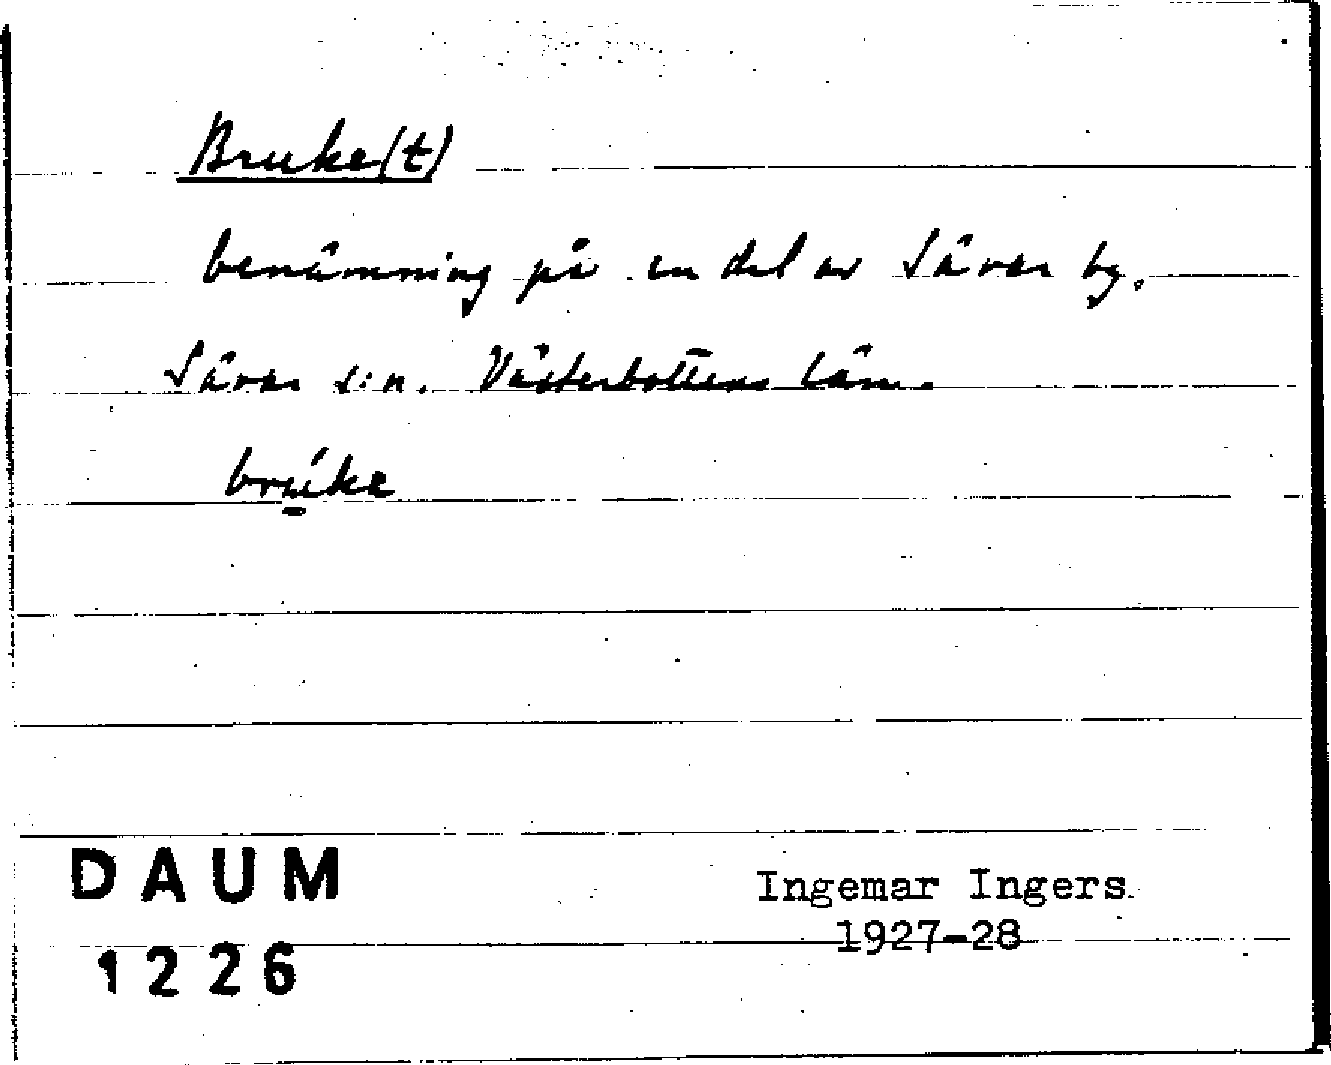 Bruke(t)
benämning på en del av Sävar by.
Sävar s:n. Västerbottens län.
brụ́ke
DAUM
1226
Ingemar Ingers
1927-28